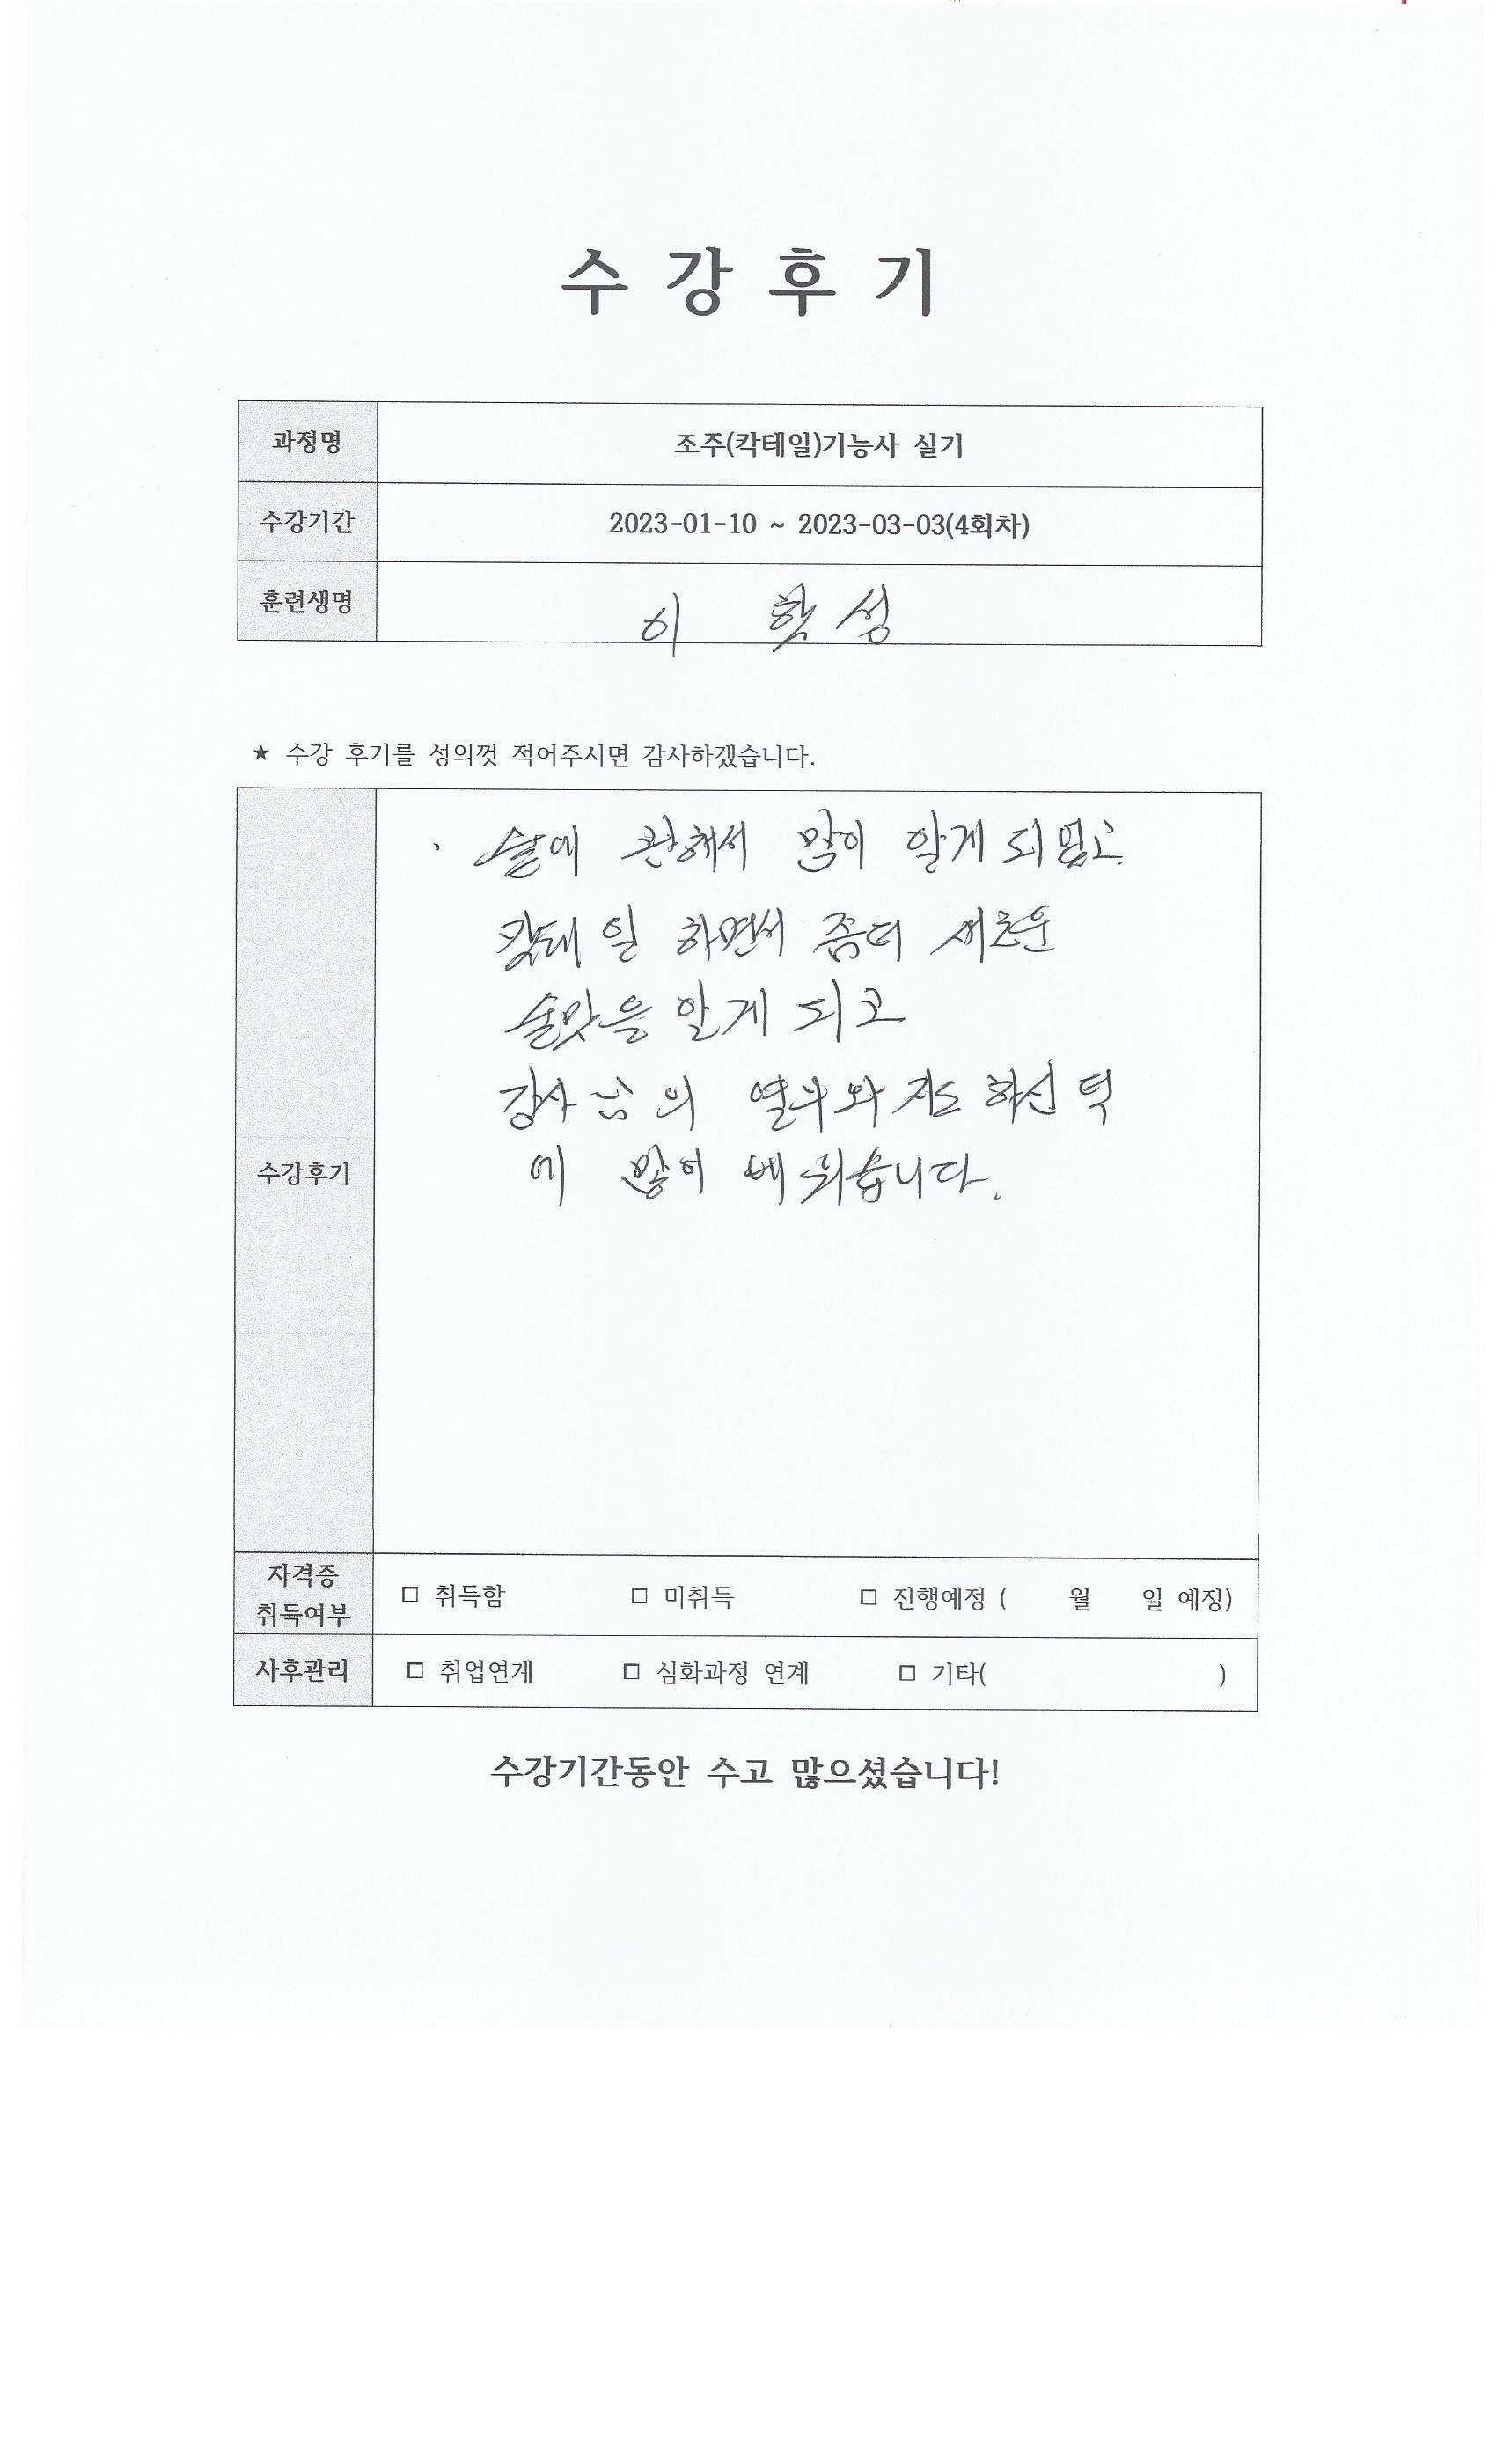 수 강 후 기
과정명 조주(칵테일)기능사 실기
수강기간 2023-01-10 ~ 2023-03-03(4회차)
훈련생명 이 학 성
★ 수강 후기를 성의껏 적어주시면 감사하겠습니다.
수강후기
술에 관해서 많이 알게 되었고
칵테일 하면서 좀더 새로운
술맛을 알게 되고
강사님의 와 지도 하신 덕
에 많이 배워습니다.
자격증
취득여부 □ 취득함 □ 미취득 □ 진행예정 ( 월 일 예정)
사후관리 □ 취업연계 □ 심화과정 연계 □ 기타( )
수강기간동안 수고 많으셨습니다!